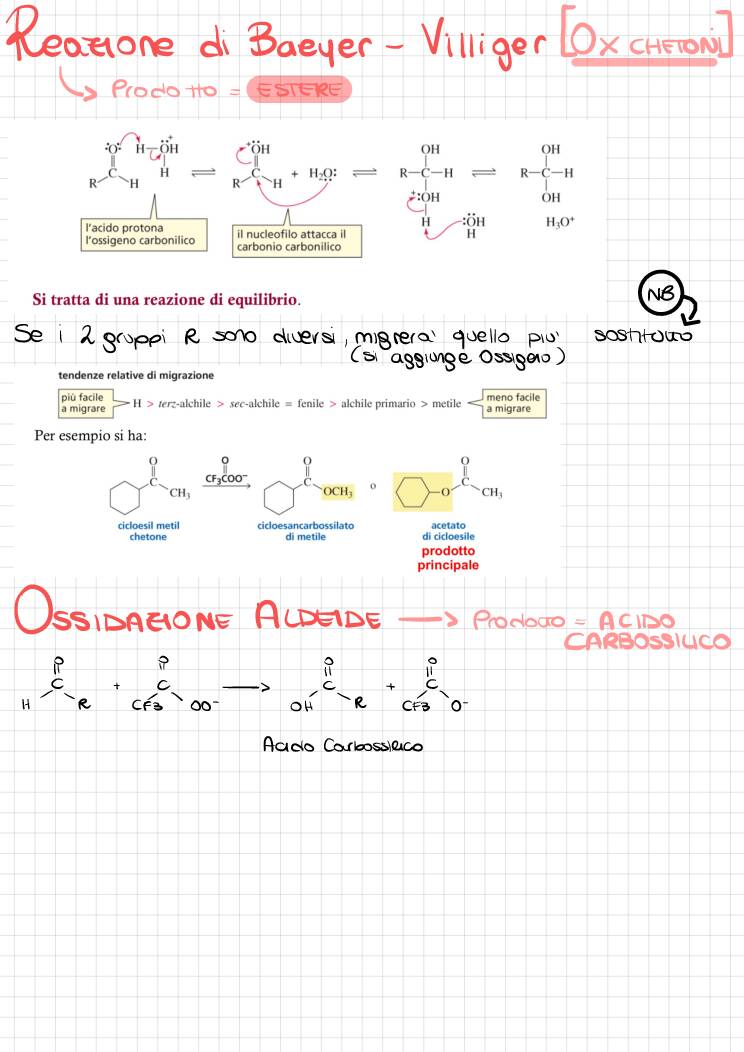 Reazione di Baeyer - Villiger [Ox CHETONI]
Prodotto = ESTERE
:O: H—ÖH
C
R H H
+ÖH
C
R H + H₂O:
OH
R—C—H
+:OH
H :ÖH
H
OH
R—C—H
OH
H₃O⁺
l'acido protona
l'ossigeno carbonilico
il nucleofilo attacca il
carbonio carbonilico
Si tratta di una reazione di equilibrio.
NB
Se i 2 gruppi R sono diversi, migrera' quello piu' sostituito
(si aggiunge Ossigeno)
tendenze relative di migrazione
più facile
a migrare
H > terz-alchile > sec-alchile = fenile > alchile primario > metile
meno facile
a migrare
Per esempio si ha:
O
C
CH₃
O
CF₃COO⁻
O
C
OCH₃
o
O
O C
CH₃
cicloesil metil
chetone
cicloesancarbossilato
di metile
acetato
di cicloesile
prodotto
principale
OSSIDAZIONE ALDEIDE → Prodotto = ACIDO
CARBOSSILICO
O O O O
C + C → C + C
H R CF3 OO⁻ OH R CF3 O⁻
Acido Carbossilico